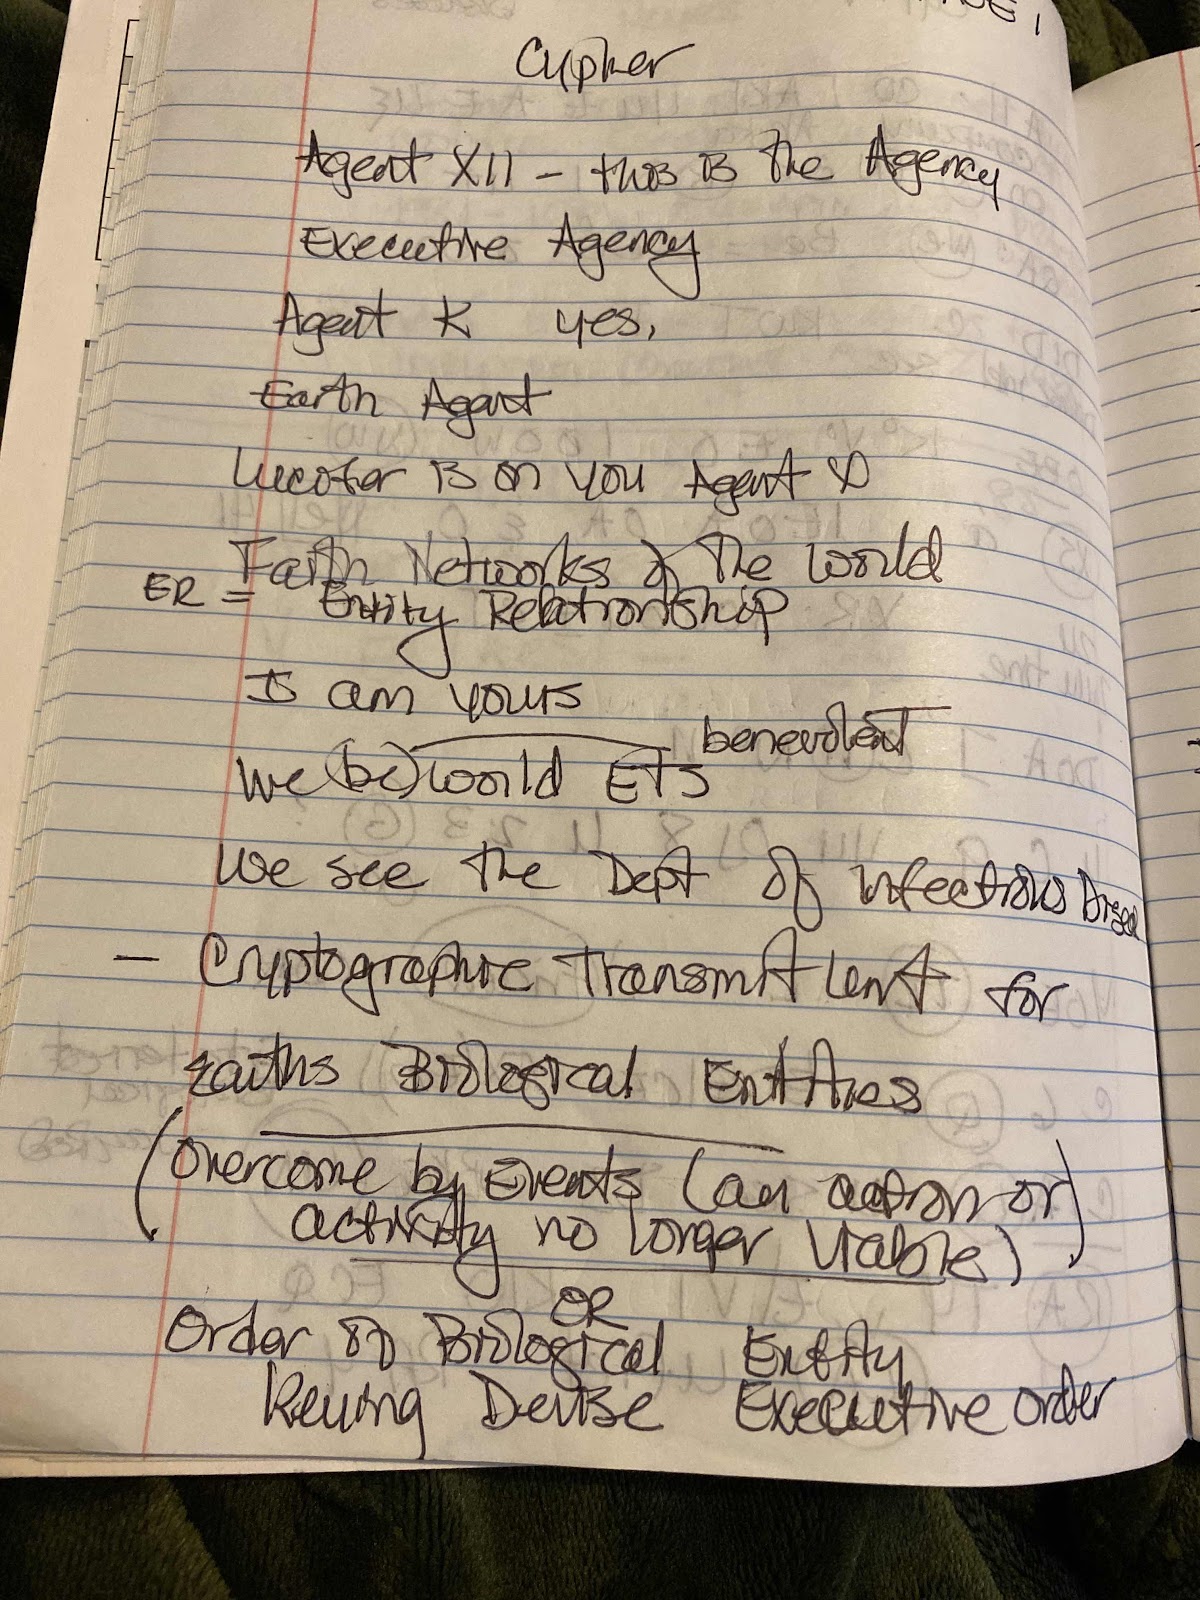 Cypher
Agent XII - this is the Agency
Executive Agency
Agent K yes,
Earth Agent
Lucifer is on you Agent
Faith Networks of the World
ER = Entity Relationship
I am yours
benevolent
We (be) world ETs
We see the Dept of Infectious
- Cryptographic Transmit for
Earths Biological Entities
(Overcome by Events (an action or
activity no longer viable)
OR
Order of Biological Entity
Keying Devise Executive order